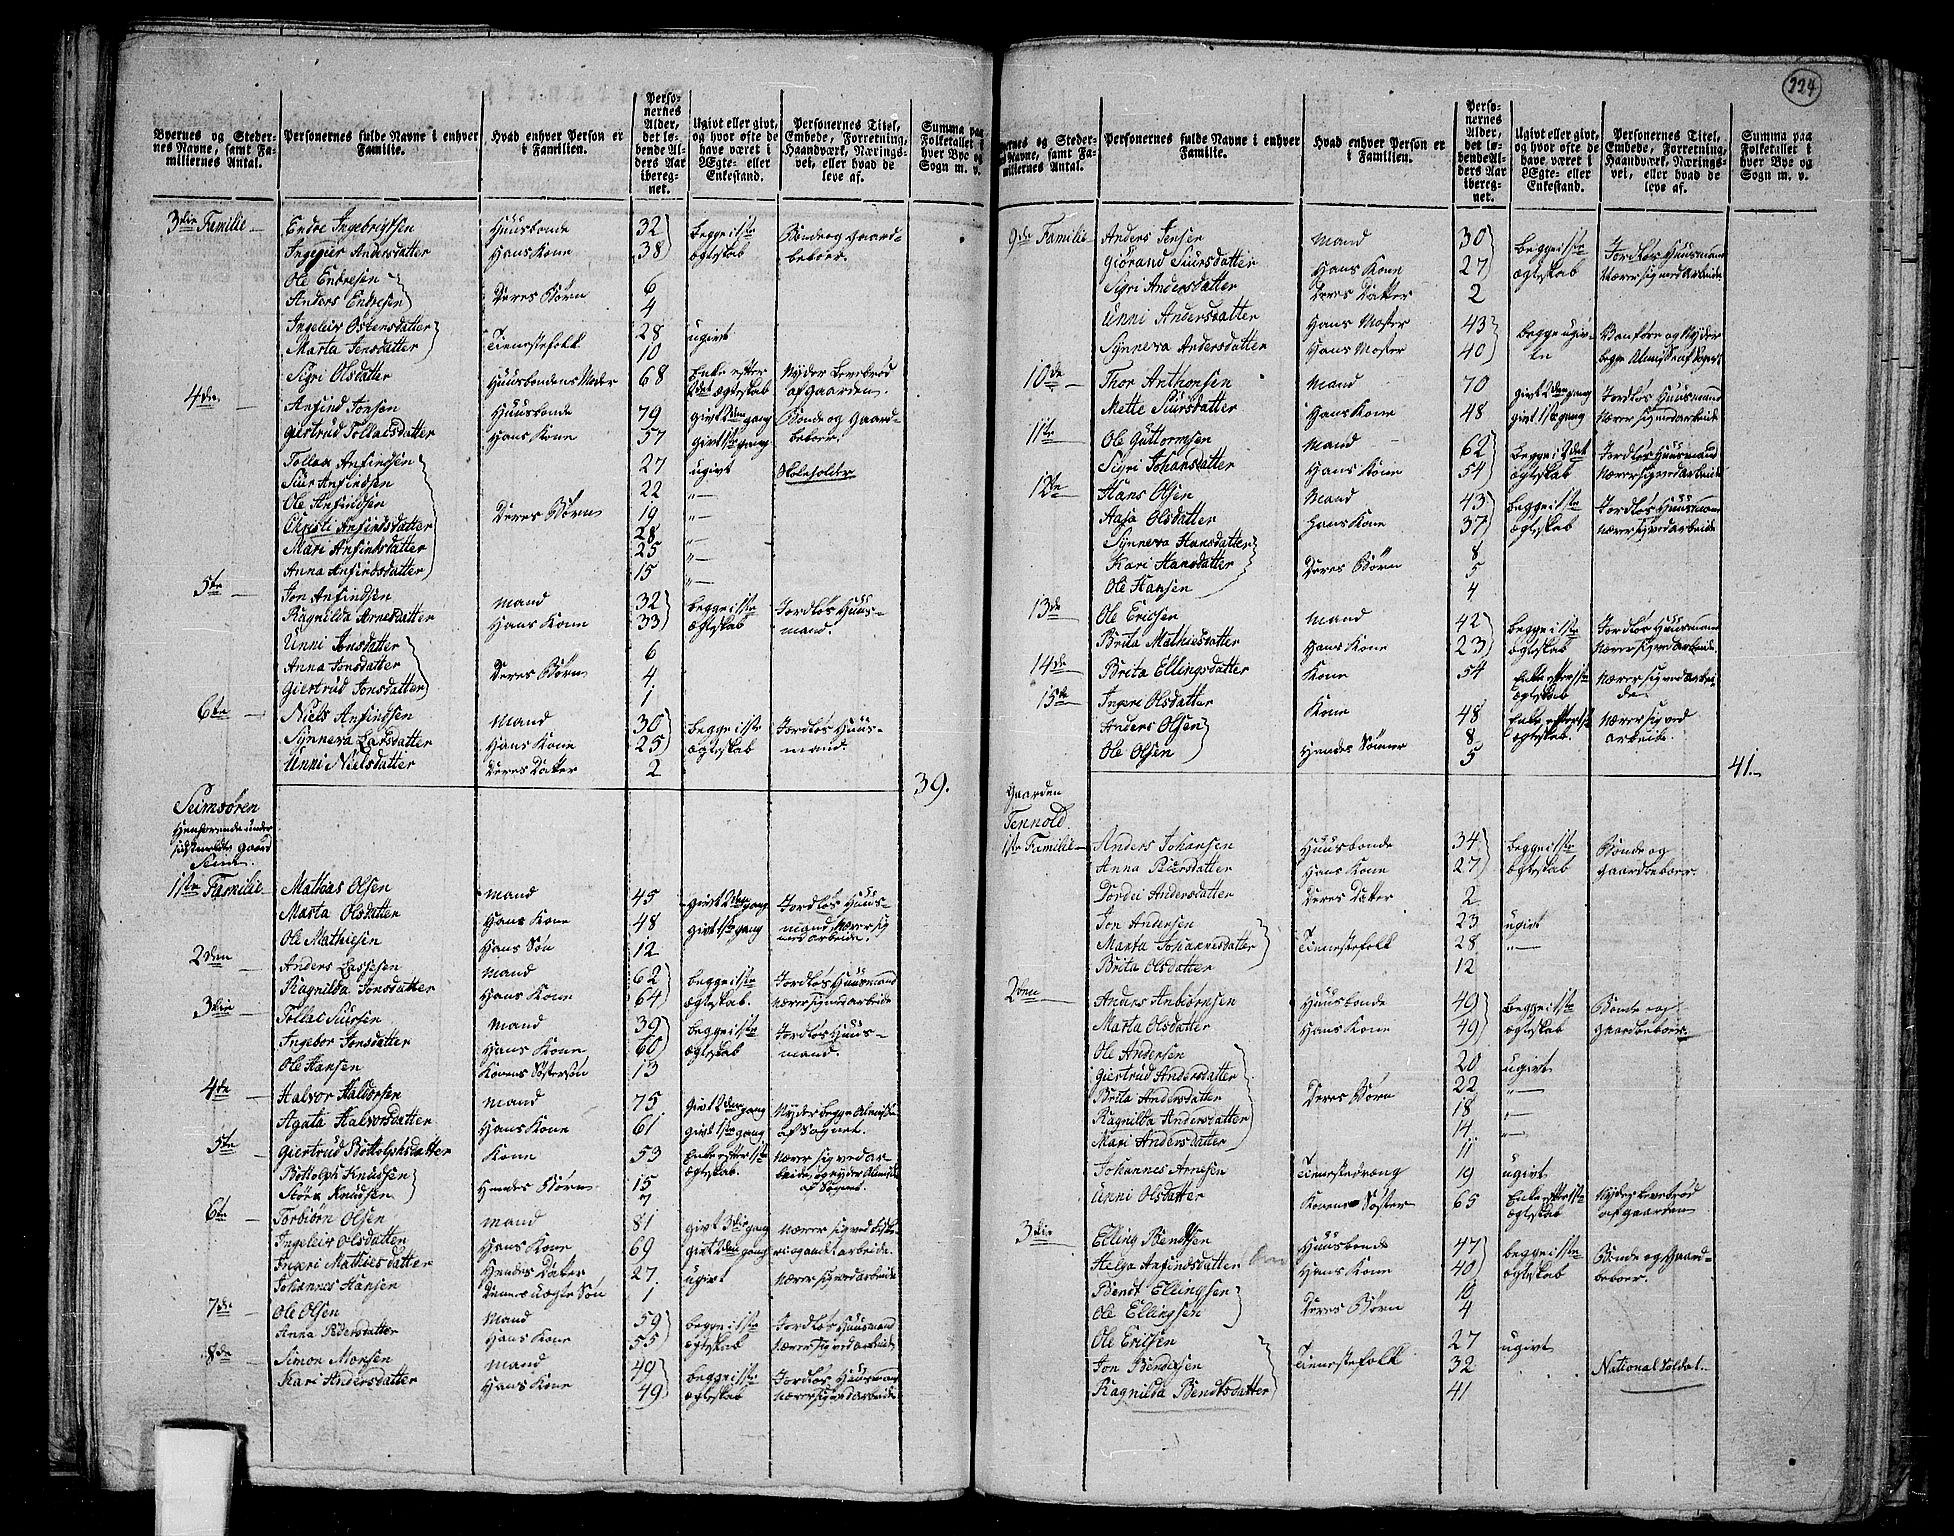 224
Byernes og Steder-
nes Navne, samt Fa-
miliernes Antal.
Personernes fulde Navne i enhver
Familie.
Hvad enhver Person er
i Familien.
Perso-
nernes
Alder,
det lø-
bende Al-
ders Aar
iberegn-
net.
Ugivt eller givt,
og hvor ofte de
have været i
Ægte- eller
Enkestand.
Personernes Titel,
Embede, Forretning,
Haandværk, Nærings-
vei, eller hvad de
leve af.
Summa paa
Folketallet i
hver Bye og
Sogn m. v.
3die Familie Endre Ingebrigtsen Huusbonde 32 begge i 1ste Bonde og Gaard-
Ingeier Andersdatter Hans Kone 38 ægteskab beboer.
Ole Endresen 6
Anders Endresen Deres Børn 4
Ingeleir Ostensdatter 28 ugivt
Marta Jensdatter Tienestefolk 10
Sigri Olsdatter Huusbondens Moder 68 Enke efter Nyder Levebrød
2det ægteskab af Gaarden.
4de Anfind Jonsen Huusbonde 79 givt 2den gang Bonde og Gaard-
Giertrud Tollaisdatter Hans Kone 57 givt 1ste gang beboer.
Tollas Anfindsen 27 ugivt
Siur Anfindsen 22 "
Ole Anfindsen 19 "
Christi Anfindsdatter Deres Børn 28 "
Mari Anfindsdatter 25 "
Anna Anfindsdatter 15 "
5te Jon Anfindsen Mand 32 begge i 1ste Jordløs Huus-
Ragnilda Arnesdatter Hans Kone 33 ægteskab mand.
Unni Jonsdatter 6
Anna Jonsdatter Deres Børn 4
Giertrud Jonsdatter 1
6te Niels Anfindsen Mand 30 begge i 1ste Jordløs Huus-
Synneva Larsdatter Hans Kone 25 ægteskab mand.
Unni Nielsdatter Deres Datter 2
39.
Seimsøren
1ste Familie Mathias Olsen Mand 45 givt 2den gang Jordløs Huus-
Marta Olsdatter Hans Kone 48 givt 1ste gang mand, Nærer sig
Ole Mathiesen Hans Søn 12 med arbeide.
2den Anders Lassesen Mand 62 begge i 1ste Jordløs Huusmand
Ragnilda Jonsdatter Hans Kone 64 ægteskab. nærer sig med arbeide
3die Tollac Siursen Mand 39 begge i 1ste Jordløs Huus-
Ingebor Jonsdatter Hans Kone 60 ægteskab mand.
Ole Hansen Konens Søstersøn 13
4de Halvor Haldorsen Mand 75 givt 2den gang Nyder begge Almisse
Agata Halvorsdatter Hans Kone 61 givt 1ste gang af Sognet.
5te Giertrud Bottolphsdatter Kone 53 Enke efter 1ste Nærer sig ved ar-
ægteskab. beide, og nyder Almisse
Bottolph Knudsen 15 af Sognet.
Störx Knudsen Hendes Børn 7
6te Torbiørn Olsen Mand 81 givt 3die gang
Ingeleir Olsdatten Hans Kone 69 givt 2den gang
Ingeri Mathiesdatter Hendes Datter 27 ugivt nærer sig ved arbeide
Johannes Hansen Dennes uægte Søn 1
7de Ole Olsen Mand 59 begge i 1ste Jordløs Huusmand
Anna Pedersdatter Hans Kone 55 ægteskab nærer sig ved arbeide
8de Simon Monsen Mand 49 begge i 1ste Jordløs Huusmand
Kari Andersdatter Hans Kone 49 ægteskab nærer sig ved arbeide
Byernes og Steder-
nes Navne, samt Fa-
miliernes Antal.
Personernes fulde Navne i enhver
Familie.
Hvad enhver Person er
i Familien.
Perso-
nernes
Alder,
det lø-
bende Al-
ders Aar
iberegn-
net.
Ugivt eller givt,
og hvor ofte de
have været i
Ægte- eller
Enkestand.
Personernes Titel,
Embede, Forretning,
Haandværk, Nærings-
vei, eller hvad de
leve af.
Summa paa
Folketallet i
hver Bye og
Sogn m. v.
9de Familie Anders Jensen Mand 30 begge i 1ste Jordløs Huusmand
Giörand Siursdatter Hans Kone 27 ægteskab Nærer sig ved Arbeide
Sigri Andersdatter Deres Datter 2
Unni Andersdatter Hans Moster 43 begge ugiv-
Synneva Andersdatter Hans Moster 40 te
10de Thor Anthonsen Mand 70 givt 2den gang Jordløs Huusmand
Mette Siursdatter Hans Kone 48 givt 1ste gang Nærer sig ved arbeide
11te Ole Guttormsen Mand 62 begge i 2det Jordløs Huusmand
Sigri Johansdatter Hans Kone 54 ægteskab Nærer sig ved arbeide
12te Hans Olsen Mand 43 begge i 1ste Jordløs Huusmand
Aasa Olsdatter Hans Kone 37 ægteskab nærer sig ved arbeide
Synneva Hansdatter 8
Kari Hansdatter Deres Børn 5
Ole Hansen 4
13de Ole Ericsen Mand 42 begge i 1ste Jordløs Huusmand
Brita Mathiesdatter Hans Kone 23 ægteskab Nærer sig ved arbeide
14de Brita Ellingsdatter Kone 54 Enke efter 1ste Nærer sig ved arbei-
ægteskab de.
15de Ingeri Olsdatter Kone 48 Enke efter 1ste Nærer sig ved
Anders Olsen 8 ægteskab. arbeide.
Ole Olsen Hendes Sønner 5
41.
Gaarden
Tennold.
1ste Familie Anders Johansen Huusbonde 34 begge i 1ste Bonde og
Anna Pedersdatter Hans Kone 27 ægteskab Gaardbeboer.
Dordei Andersdatter Deres Datter 2
Jon Andersen 23 ugivt
Marta Johannesdatter Tienestefolk 28 "
Brita Olsdatter 12
2den Anders Anbiörnsen Huusbonde 49 begge i 1ste Bonde og
Marta Olsdatter Hans Kone 49 ægteskab gaardbeboer.
Ole Andersen 20 ugivt
Giertrud Andersdatter 22 "
Brita Andersdatter Deres Børn 18 "
Ragnilda Andersdatter 14 "
Mari Andersdatter 11
Johannes Arnesen Tienestedræng 19 ugivt
Unni Olsdatter Konens Søster 65 Enke efter 1ste Nyder Levebrød
ægteskab af gaarden
3die Elling Bendtsen Huusbonde 47 begge i 1ste Bonde og Gaard-
Helga Anfindsdatter Hans Kone 40 ægteskab beboer.
Bendt Ellingsen 10
Ole Ellingsen Deres Børn 4
Ole Ericsen 27 ugivt
Jon Bendtsen Tienestefolk 32 National Soldat.
Ragnilda Bendtsdatter 41